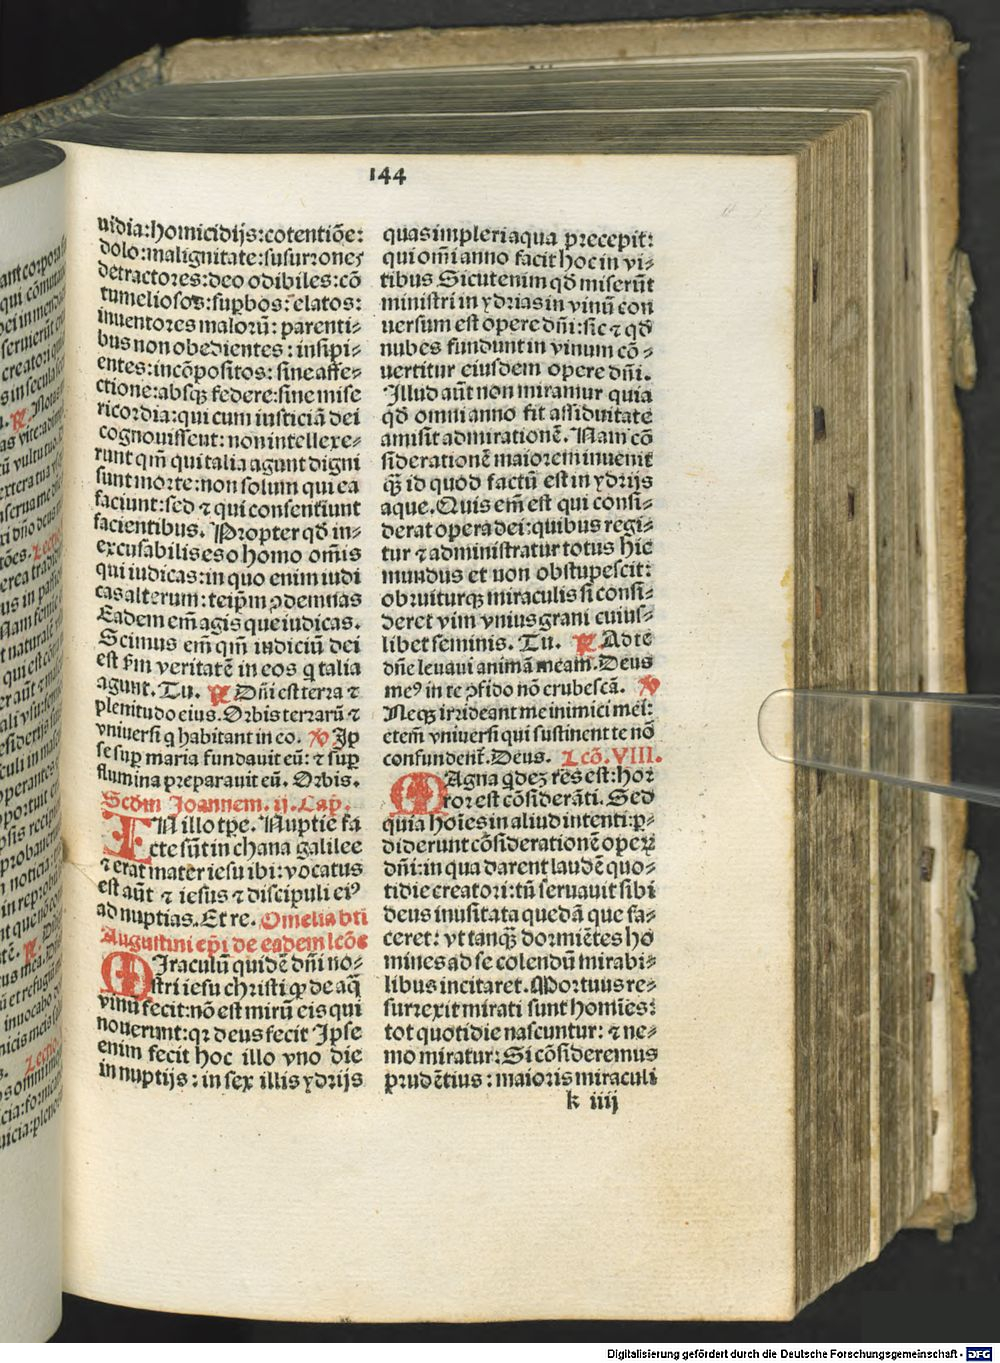 144
uidia:homicidijs:cotentiõe:
dolo:malignitate:susurrones
detractores:deo odibiles:cõ
tumeliosos:suꝑbos:elatos:
inuentores malorũ: parenti⸗
bus non obedientes: insipi⸗
entes:incõpositos: sine affe⸗
ctione:absqꝫ federe:sine mise
ricordia:qui cum iusticiã dei
cognouissent: non intellexe⸗
runt qm̃ qui talia agunt digni
sunt morte: non solum qui ea
faciunt:sed ⁊ qui consentiunt
facientibus. Propter qð in⸗
excusabilis es o homo om̃is
qui iudicas: in quo enim iudi
cas alterum: teip̃m ꝯdemnas
Eadem em̃ agis que iudicas.
Scimus em̃ qm̃ iudiciũ dei
est ẜm veritatẽ in eos q̃ talia
agunt. Tu. ℟ Dñi est terra ⁊
plenitudo eius. Orbis terrarũ ⁊
vniuersi q̃ habitant in eo. ℣ Ip
se suꝑ maria fundauit eũ: ⁊ suꝑ
flumina preparauit eũ. Orbis.
Scd̃m Joannem. ij. Cap̃.
IN illo tꝑe. Nuptie fa
cte sũt in chana galilee
⁊ erat mater iesu ibi: vocatus
est aũt ⁊ iesus ⁊ discipuli eiꝰ
ad nuptias. Et re. Omelia bti
Augustini ep̃i de eadem lcõe
MIraculũ quidẽ dñi no⸗
stri iesu christi qꝫ de aq̃
vinũ fecit: nõ est mirũ eis qui
nouerunt: qꝛ deus fecit Ipse
enim fecit hoc illo vno die
in nuptijs: in sex illis ydrijs
quas impleri aqua precepit:
qui om̃i anno facit hoc in vi⸗
tibus Sicut enim qð miserũt
ministri in ydrias in vinũ con
uersum est opere dñi: sic ⁊ qð
nubes fundunt in vinum cõ⸗
uertitur eiusdem opere dñi.
Illud aũt non miramur quia
qð omni anno fit assiduitate
amisit admirationẽ. Nam cõ
siderationẽ maiorem inuenit
qꝫ̃ id quod factũ est in ydrijs
aque. Quis em̃ est qui consi⸗
derat opera dei: quibus regi⸗
tur ⁊ administratur totus hic
mundus et non obstupescit:
obruiturqꝫ miraculis si consi⸗
deret vim vnius grani cuius⸗
libet seminis. Tu. ℟ Ad te
dñe leuaui animã meam. Deus
meꝰ in te ꝯfido nõ erubescã. ℣
Neqꝫ irrideant me inimici mei:
etem̃ vniuersi qui sustinent te nõ
confundent̃. Deus. Lcõ. VIII.
MAgna q̃dez res est: hor
ror est cõsiderãti. Sed
quia hoĩes in aliud intenti: ꝑ⸗
diderunt cõsiderationẽ opeꝝ
dñi: in qua darent laudẽ quo⸗
tidie creatori: tñ seruauit sibi
deus inusitata quedã que fa⸗
ceret: vt tanqꝫ̃ dormiẽtes ho
mines ad se colendũ mirabi⸗
libus incitaret. Mortuus re⸗
surrexit mirati sunt homĩes:
tot quotidie nascuntur: ⁊ ne⸗
mo miratur: Si cõsideremus
prudẽtius: maioris miraculi
k iiij
Digitalisierung gefördert durch die Deutsche Forschungsgemeinschaft - DFG